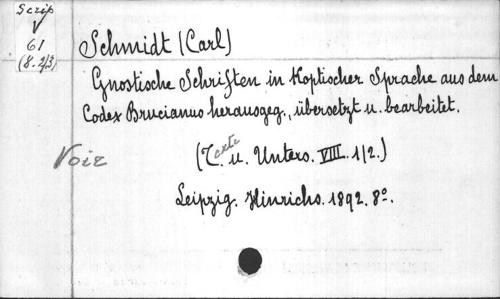 Scrip
V
61
(8. 2/3)
Schmidt (Carl)
Gnostische Schriften in Koptischer Sprache aus dem
Codex Brucianus herausgeg., übersetzt u. bearbeitet.
Voir
(Texte u. Unters. VIII. 1/2.)
Leipzig. Hinrichs. 1892. 8º.